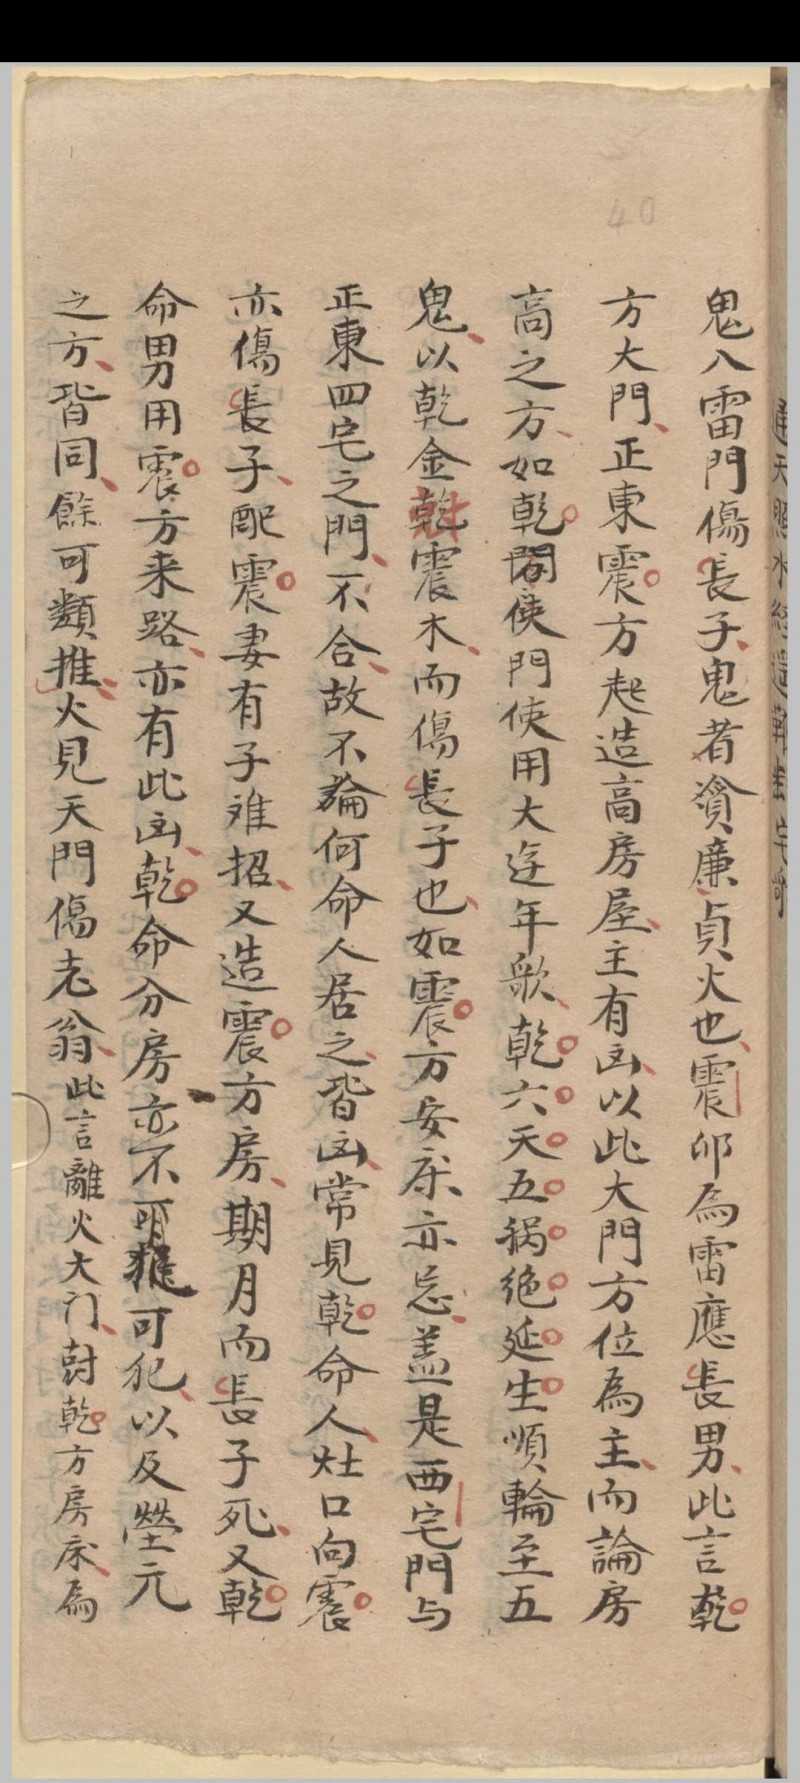 鬼入雷門傷長子鬼者貪廉貞火也震卯為雷應長男此言乾
方大門正東震方起造高房屋主有凶以此大門方位為主而論房
高之方如乾開使門使用大遊年歌乾六天五祸绝延生順輪至五
鬼以乾金尅震木而傷長子也如震方安床亦忌盖是西宅門与
正東四宅之門不合故不論何命人居之皆凶常見乾命人灶口向震
亦傷長子配震妻有子难招又造震方房期月而長子死又乾
命男用震方来路亦有此凶乾命分房亦不可犯以及塋元
之方皆同餘可類推火見天門傷老翁此言離火大门尅乾方房床為
40